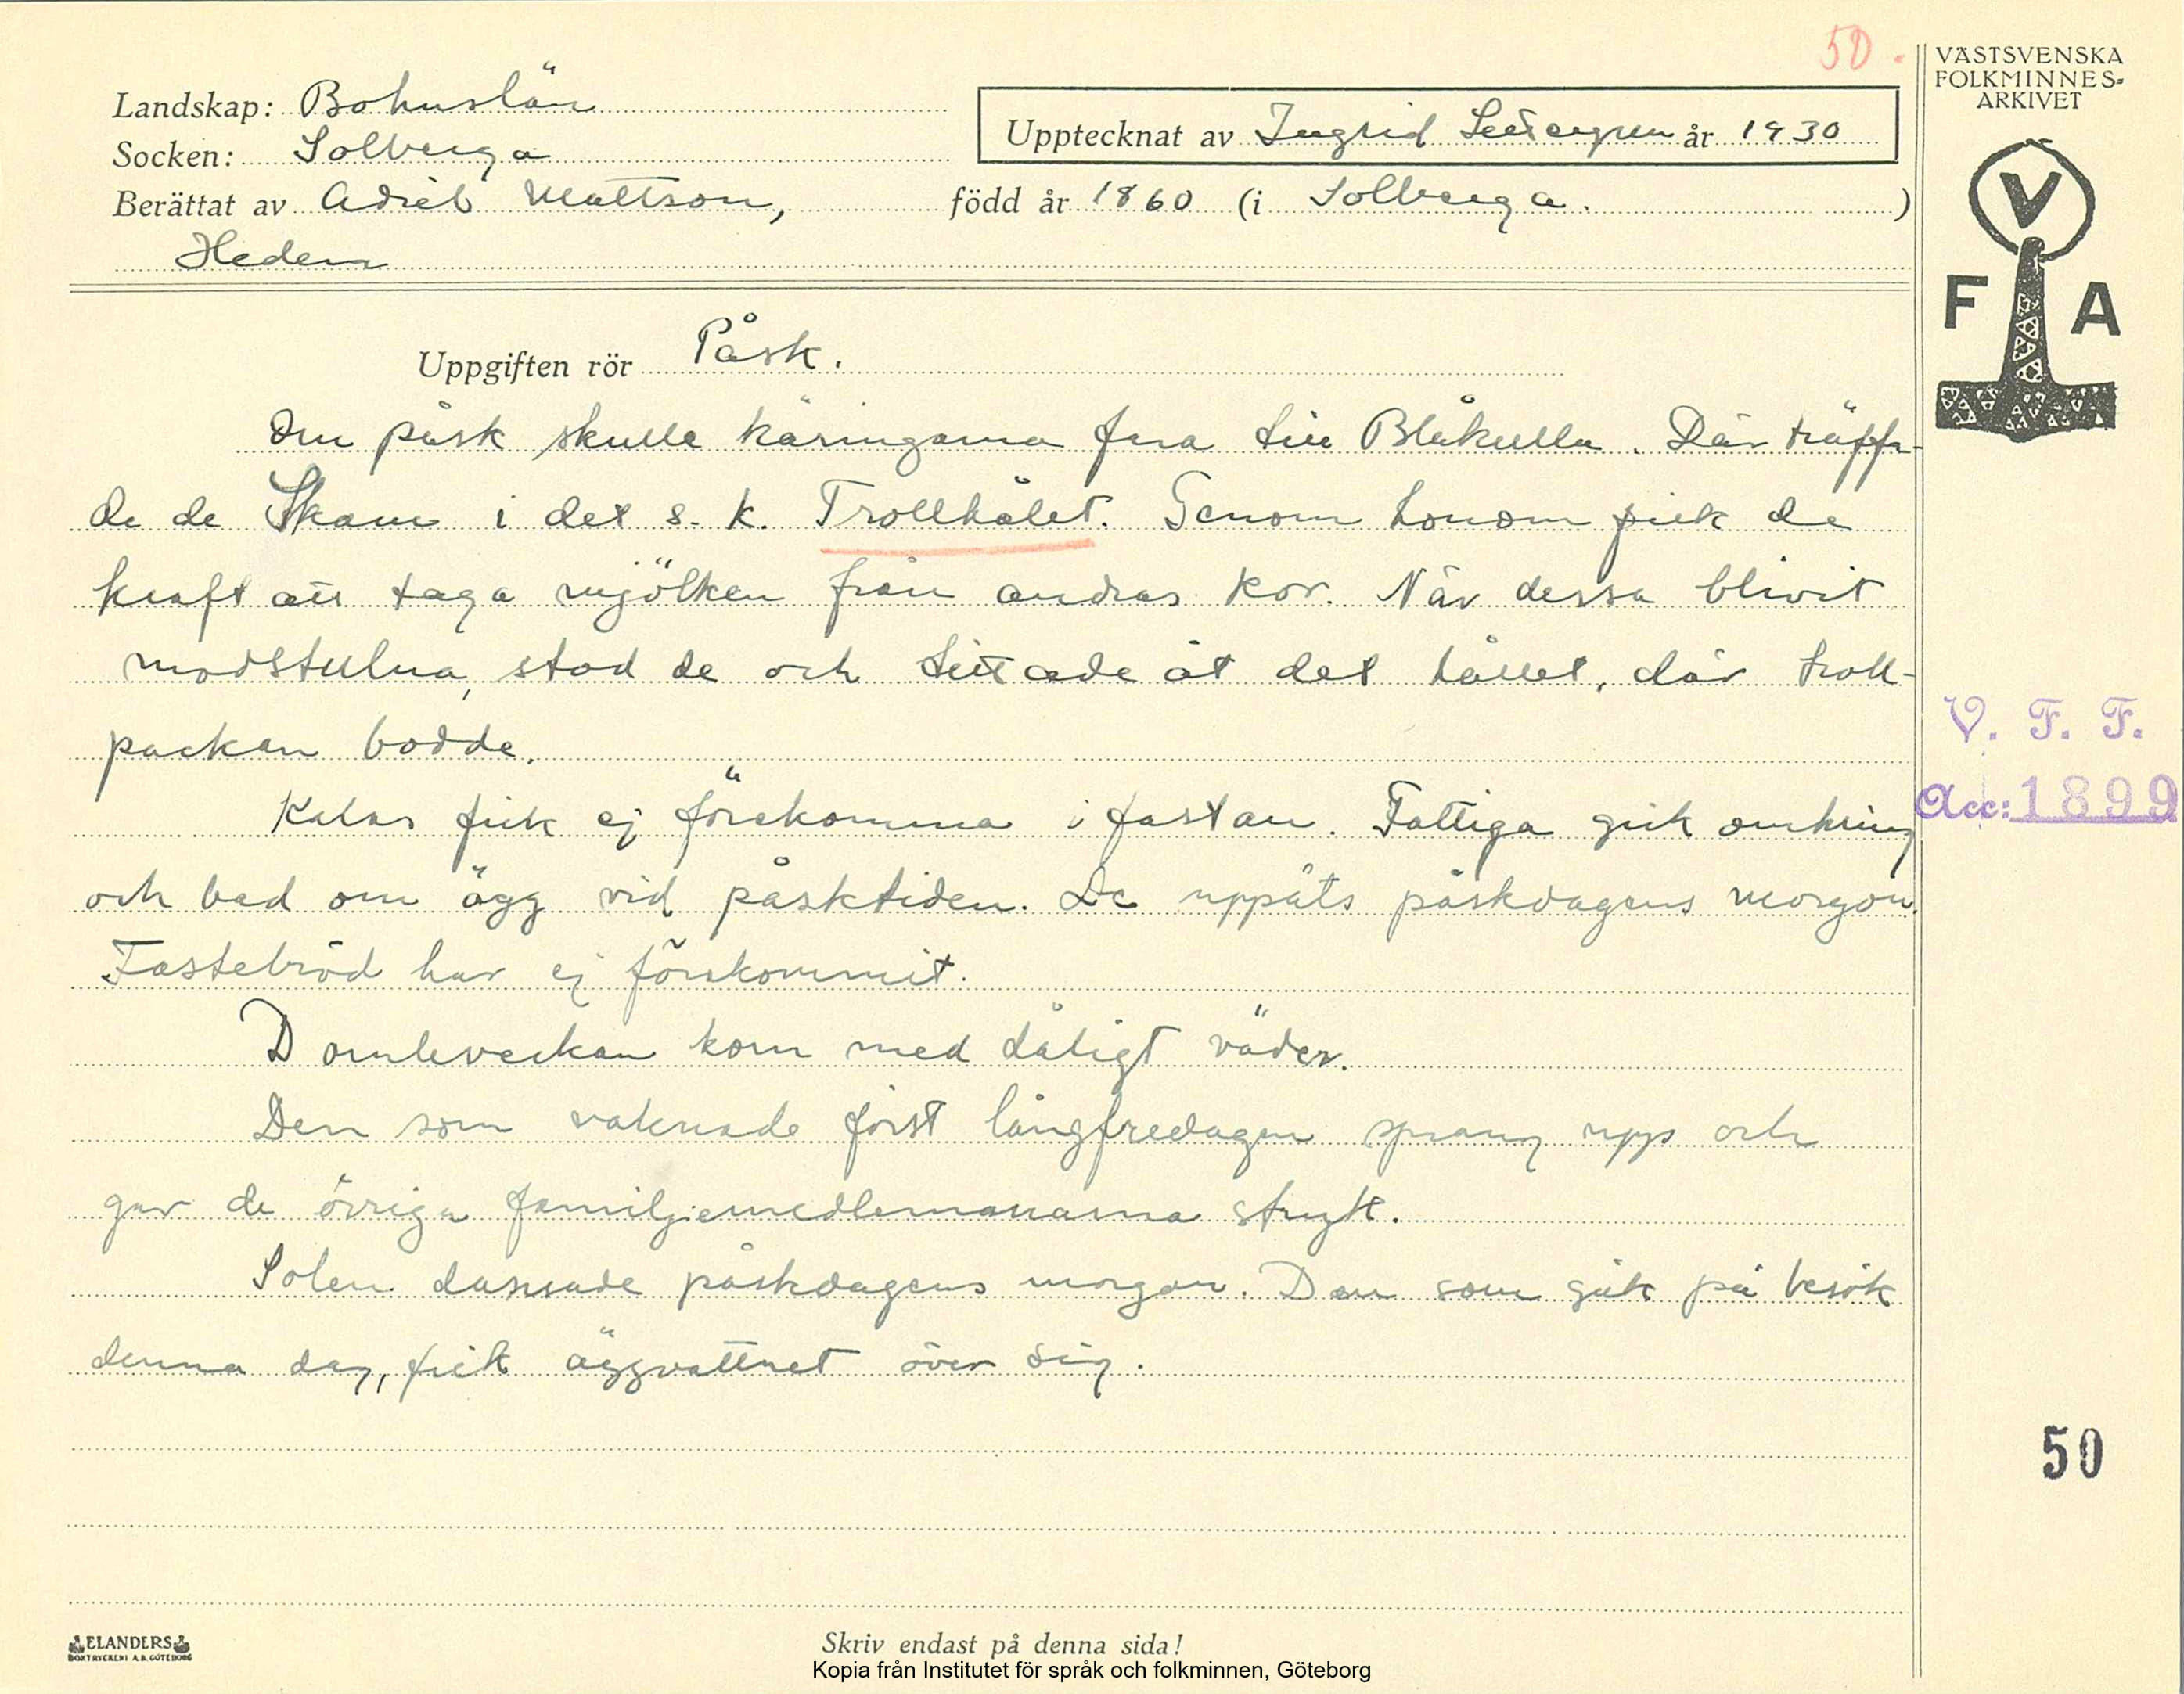 50.
VÄSTSVENSKA
FOLKMINNES-
ARKIVET
V
F A
Landskap: Bohuslän
Upptecknat av Ingrid år 1930
Socken: Solberga
Berättat av Adrieb Mattson, född år 1860 (i Solberga. )
Heden
Uppgiften rör Påsk.
Om påsk skulle käringarna fara till Blåkulla. Där träffa-
de de Skam i det s. k. Trollhålet. Genom honom fick de
kraft att taga mjölken från andras kor. När dessa blivit
modstulna, stod de och tittade åt det hållet, där troll-
packan bodde.
Kalas fick ej förekomma i fastan. Fattiga gick omkring
och bad om ägg vid påsktiden. De uppåts påskdagens morgon.
Fastebröd har ej förekommit.
Domleveckan kom med dåligt väder.
Den som vaknade först långfredagen sprang upp och
gav de övriga familjemedlemmarna stryk.
Solen dansade påskdagens morgon. Den som gick på besök
denna dag, fick äggvattnet över sig.
V. F. F.
Acc: 1899
50
ELANDERS
BOKTRYCKERI A.B. GÖTEBORG
Skriv endast på denna sida!
Kopia från Institutet för språk och folkminnen, Göteborg